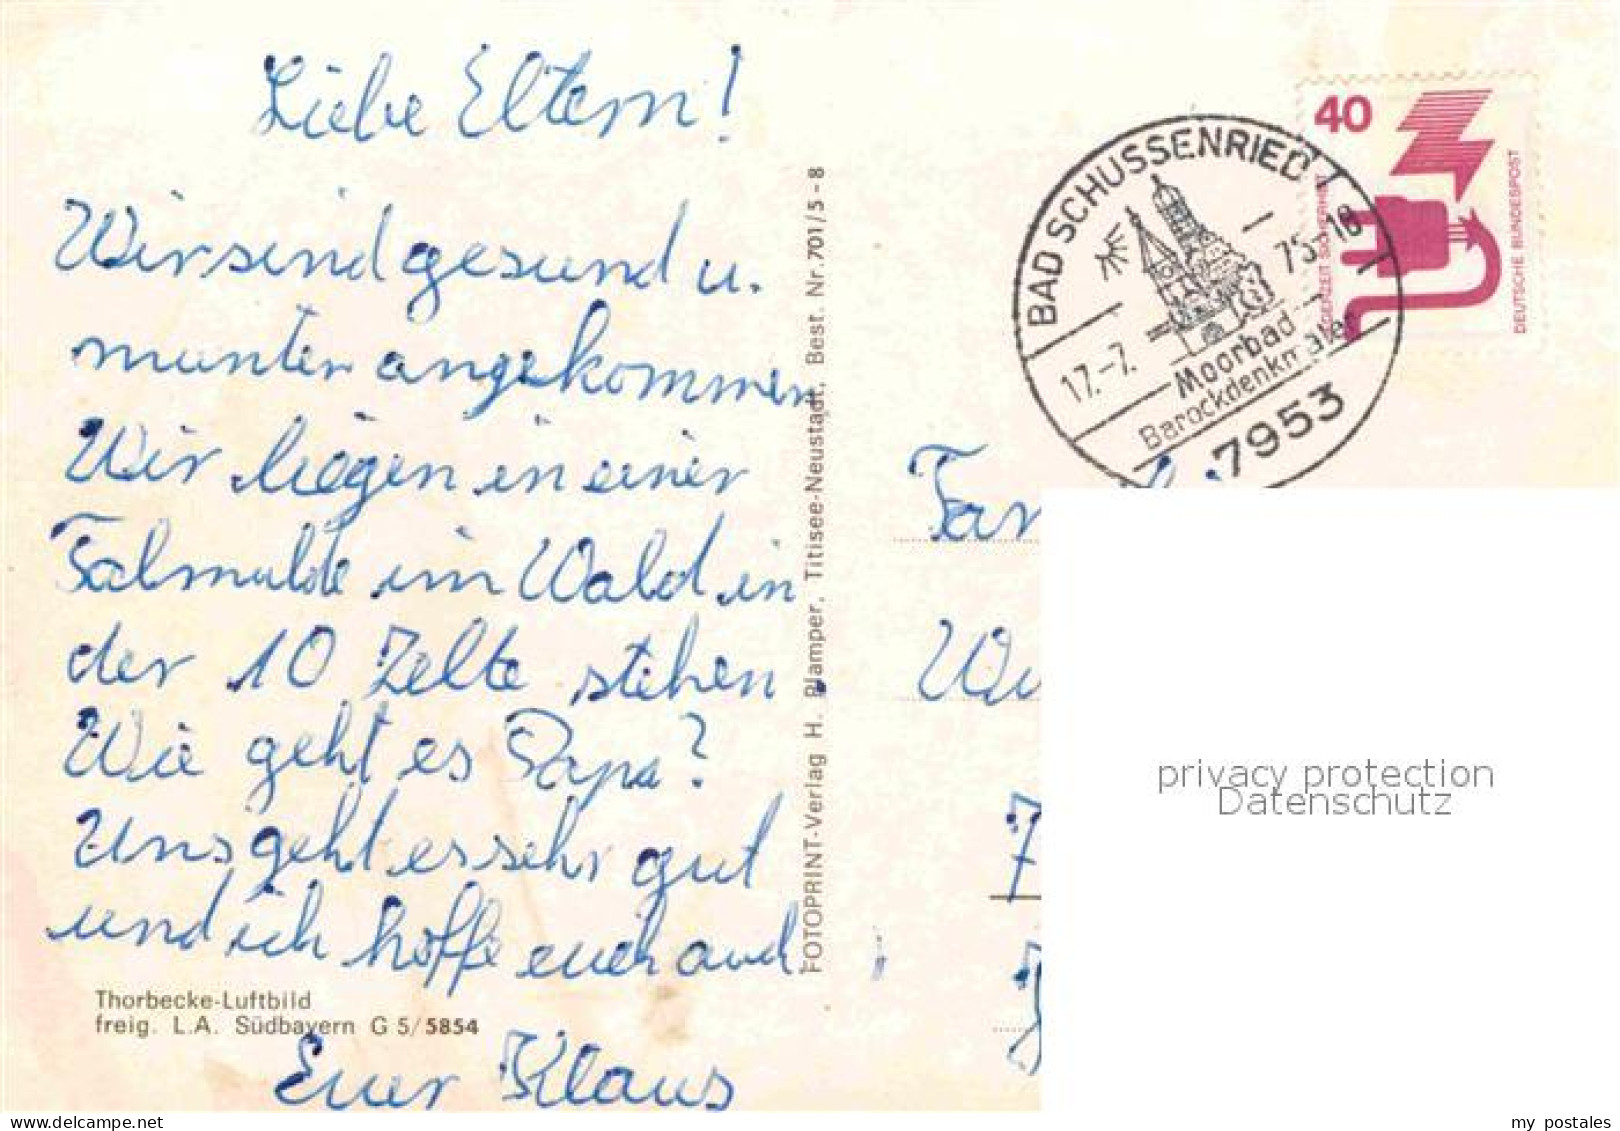 Liebe Eltern!
Wir sind gesund u.
munter angekommen
Wir liegen in einer
Talmulde im Wald in
der 10 Zelte stehen.
Wie geht es Papa?
Uns geht es sehr gut
und ich hoffe euch auch
Euer Klaus
Thorbecke-Luftbild
freig. L.A. Südbayern G 5/5854
FOTOPRINT-Verlag H. Plamper, Titisee-Neustadt, Best. Nr. 701/5-8
BAD SCHUSSENRIED 1
17.-7. 75-18
Moorbad
Barockdenkmäler
7953
40
DEUTSCHE BUNDESPOST
JEDERZEIT SICHERHEIT
Fam
We
7
privacy protection
Datenschutz
my postales